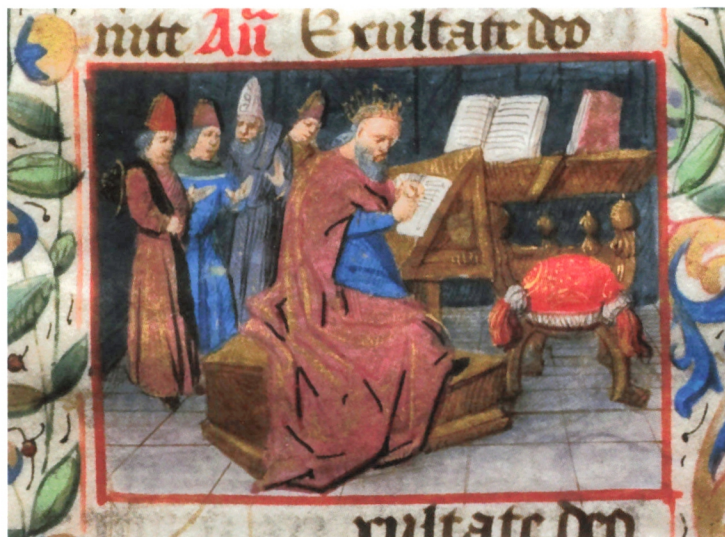 nite Añ Exultate deo
xultate deo